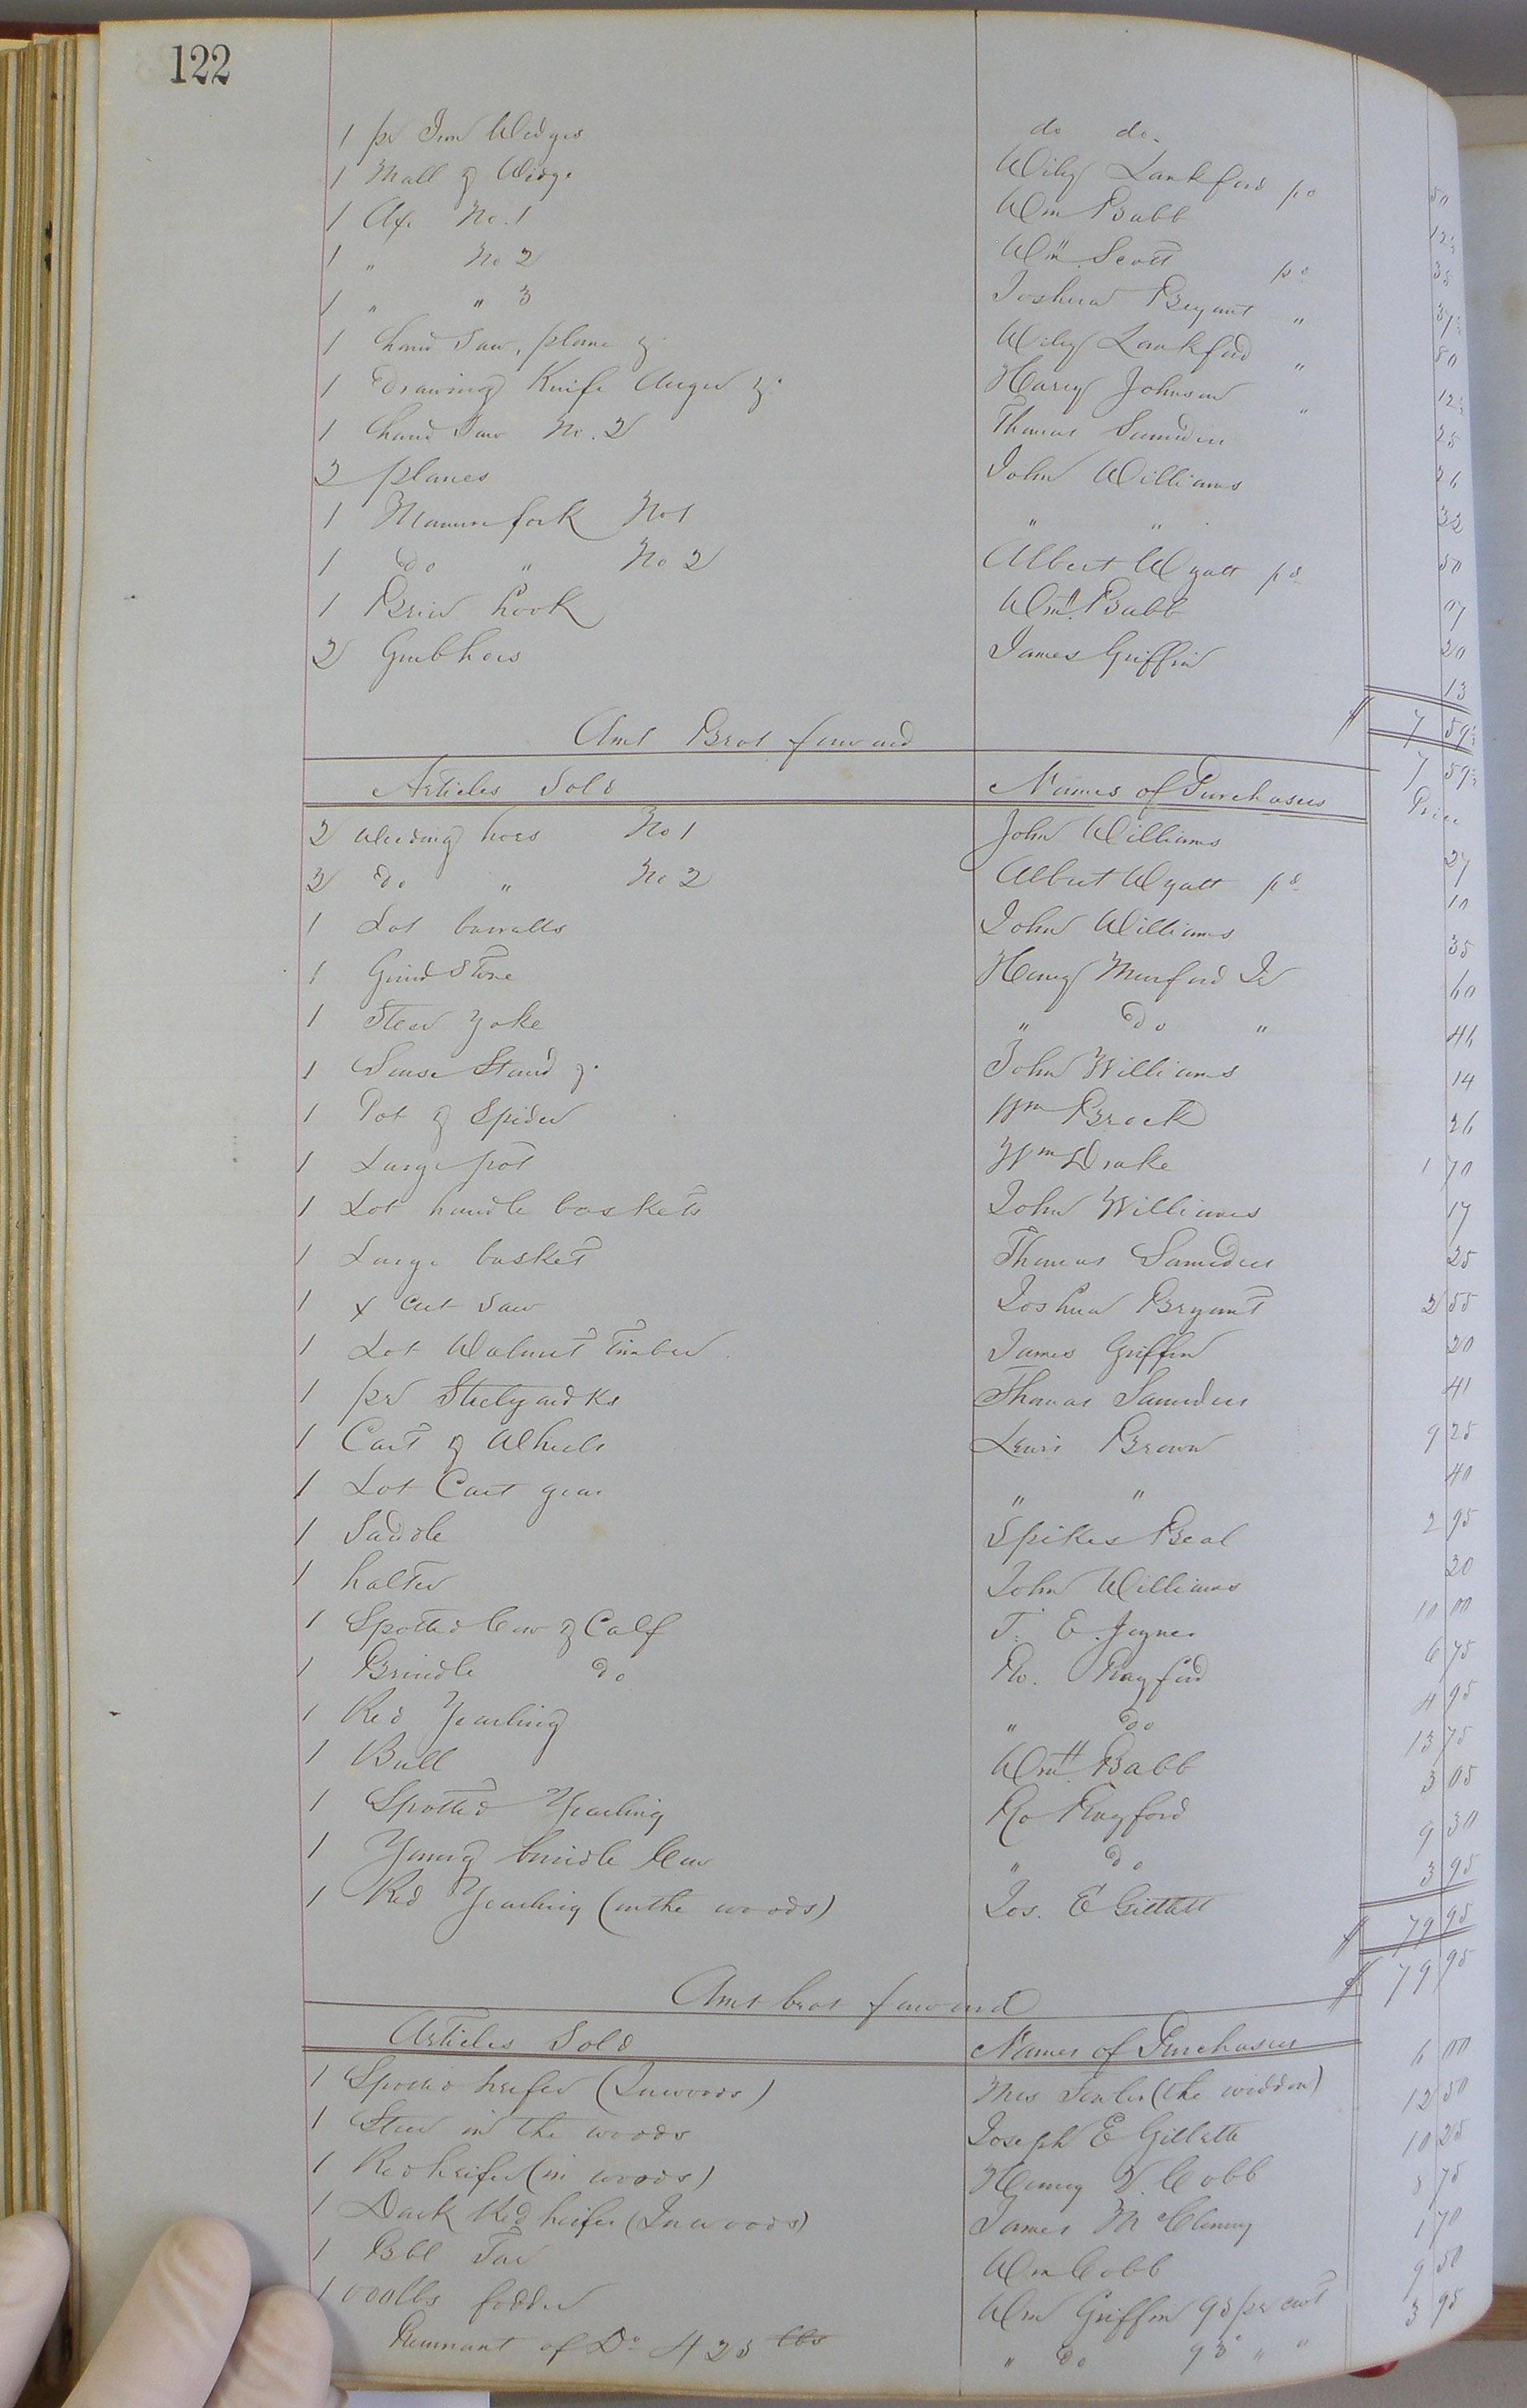 122
1 pr Iron Wedges do do 50
1 Mall & Wedge Wiley Lankford pd 12½
1 Ax No. 1 Wm Babb 38
1 " No 2 Wm Scott pd 37½
1 " " 3 Joshua Bryant " 50
1 hand Saw, plane &. Wiley Lankford " 12½
1 Drawing Knife Auger &. Harry Johnson " 25
1 hand Saw No. 2 Thomas Saunders 26
2 planes John Williams 32
1 Manure fork No 1 " " 50
1 do " No 2 Albert Wyatt pd 07
1 Brier hook Wm H Babb 20
2 Grubhoes James Griffin 13
$ 7 59½
Amt Brot forward 7 59½
Articles Sold Names of Purchasers Price
2 Weeding hoes No 1 John Williams 27
2 do " No 2 Albert Wyatt pd 10
1 Lot barrells John Williams 35
1 Grind Stone Henry Munford Jr 60
1 Steer Yoke " do " 46
1 Stand &. John Williams 14
1 Pot & Spider Wm Brock 26
1 Large pot Wm Drake 1 70
1 Lot handle baskets John Williams 17
1 Large basket Thomas Saunders 25
1 x Cut Saw Joshua Bryant 2 55
1 Lot Walnut Timber James Griffin 20
1 pr Steelyards Thomas Saunders 41
1 Cart & Wheels Lewis Brown 9 25
1 Lot Cart gear " " 40
1 Saddle Spikes Beal 2 95
1 halter John Williams 20
1 Spotted Cow & Calf T. E. Joyner 10 00
1 Brindle do Ro. Rayford 6 75
1 Red Yearling " do 4 95
1 Bull Wm H Babb 13 75
1 Spotted Yearling Ro Rayford 3 05
1 Young brindle Cow " do 9 30
1 Red Yearling (in the woods) Jos. E Gillett 3 95
$ 79 95
Amt brot forward $ 79 95
Articles Sold Names of Purchasers
1 Spotted heifer (In woods) Mrs (the widdow) 6 00
1 Steer in the woods Joseph E Gillette 12 50
1 Red heifer (in woods) Henry V. Cobb 10 25
1 Dark Red heifer (In woods) James McClenny 8 75
1 Bbl Tar Wm Cobb 1 70
1000 lbs fodder Wm Griffin 95 pr cwt 9 50
Remnant of Do 423 lbs " do 93 " " 3 95